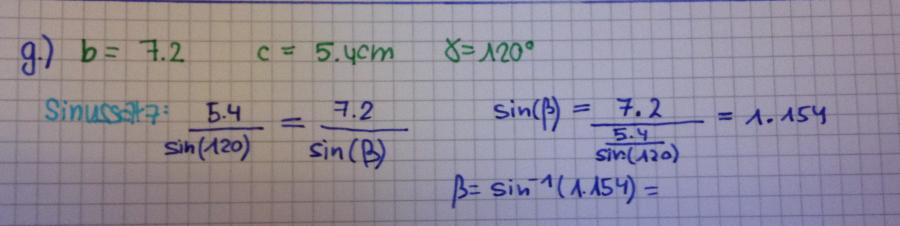 g.) b = 7.2 c = 5.4cm γ=120°
Sinussatz: 5.4/sin(120) = 7.2/sin(β) sin(β) = 7.2/(5.4/sin(120)) = 1.154
β= sin⁻¹(1.154) =